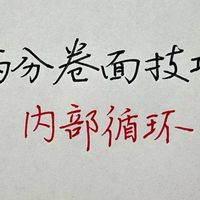 分卷面技
内部循环